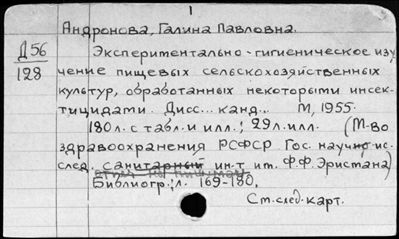 1
Андронова, Галина Павловна.
Д56
128
Экспериментально-гигиеническое изу
чение пищевых сельскохозяйственных
культур, обработанных некоторыми инсек-
тицидами. Дисс... канд... М, 1955.
180 л. с табл. и илл.; 29 л. илл. (М-во
здравоохранения РСФСР Гос. научно ис.
след. санитарный ин-т им. Ф.Ф. Эристана)
Библиогр.: л. 169-180.
См. след. карт.